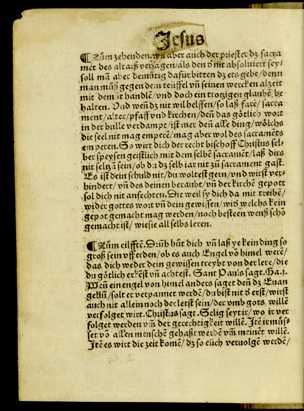 Jesus
¶ Zům zehenden, wañ aber auch der priester dz sacra
mēt des altars versagen, als den d̄ nit absoluiert sey/
soll mā aber demůtig dafür bitten dz ers gebe/ denn
man můß gegen dem teuffel vñ seinen wercken alzeit
mit dem̄t handlē/ vnd doch ein troʒigen glaubē be
halten. Vnd weñ dz nit wil helffen/ so laß farē/ sacra=
ment/ altar/ pfaff vnd kirchen/ denn das götlich wort
in der bulle verdampt/ ist mer denn alle ding/ wölchs
die seel nit mag emperē/ mag aber wol des sacramēts
emperen. So wirt dich der recht bischoff Christus sel=
ber speysen geistlich mit dem selbē sacramēt/ laß dirs
nit seltzā sein/ ob du dz selbig iar nit zů sacrament gast.
Es ist dein schuld nit/ du woltest gern/ vnd wirst ver=
hindert/ vñ des deinen beraubt/ vñ der kirchē gepott
sol dich nit ansechten. Die weil sy dich da mit treibē/
wider gottes wort vñ dein gewissen/ wiß wölchs kein
gepot gemacht mag werden/ noch besteen weñ schō
gemacht ist/ wie sie all selbs leren.
¶ Zům eilfften. Drüb hüt dich vñ laß ye kein ding so
groß sein vff erden/ ob es auch Engel vō himel werē/
das dich wider dein gewissen treybe von der lere/ die
du götlich erkēst vñ achtest. Sant Pauls sagt. Ga. j.
Weñ ein engel von himel anders saget den dz Euan
gelium/ solt er verpannet werdē/ du bist nit d̄ erst/ wirst
auch nit allein noch der letst sein/ der vmb gots willē
verfolget wirt. Christus sagt. Selig seyt ir/ wo ir ver
folget werden vm̄ der gerechtigkeit willē. Itē ir müs=
set vō allen menschē gehasst werdē vm̄ meinet willē.
Itē es wirt die zeit komē/ dz so euch veruolgē werdē/